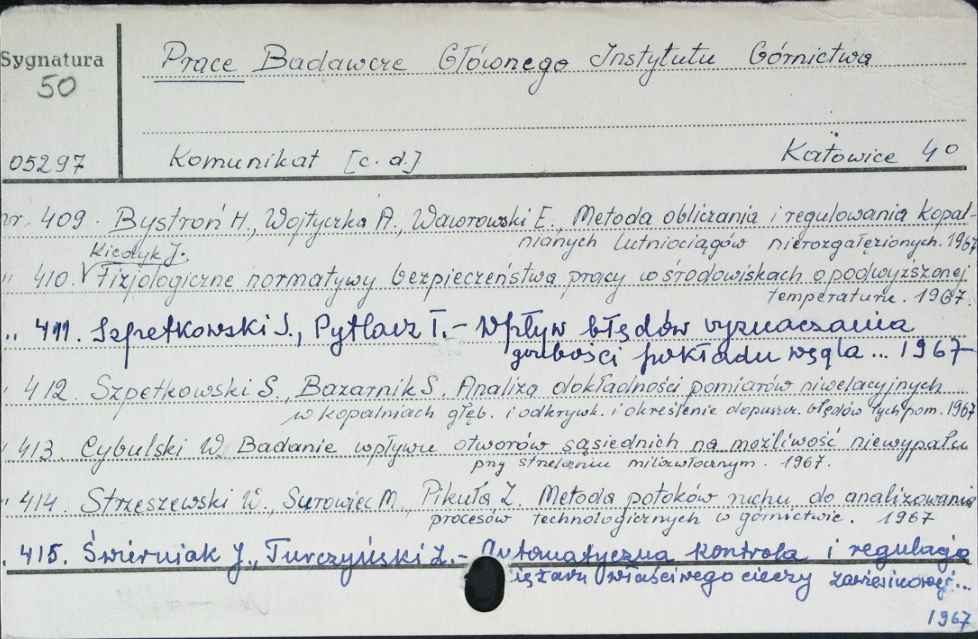 Sygnatura
50
Prace Badawcze Głównego Instytutu Górnictwa
05297
Komunikat [c. d.]
Katowice 40
nr. 409. Bystroń H., Wojtyczka A., Waworowski E., Metoda obliczania i regulowania kopal,
nianych lutniociągów nierozgałęzionych. 1967
Kiedyk J.
" 410. V Fizjologiczne normatywy bezpieczeństwa pracy w środowiskach o podwyższonej
temperaturze. 1967
" 411. Szpetkowski S., Pytlarz T. - Wpływ błędów wyznaczania
grubości pokładu węgla ... 1967
" 412. Szpetkowski S., Bazarnik S. Analiza dokładności pomiarów niwelacyjnych
w kopalniach głęb. i odkrywk. i określenie dopuszcz. błędów tych pom. 1967
" 413. Cybulski W. Badanie wpływu otworów sąsiednich na możliwość niewypału
przy strzelaniu milizwłocznym. 1967.
" 414. Strzeszewski W., Surowiec M., Pikuła Z. Metoda potoków ruchu do analizowania
procesów technologicznych w górnictwie. 1967
" 415. Świerniak J., Turczyński Z. - Automatyczna kontrola i regulacja
ciężaru właściwego cieczy zawiesinowej...
1967